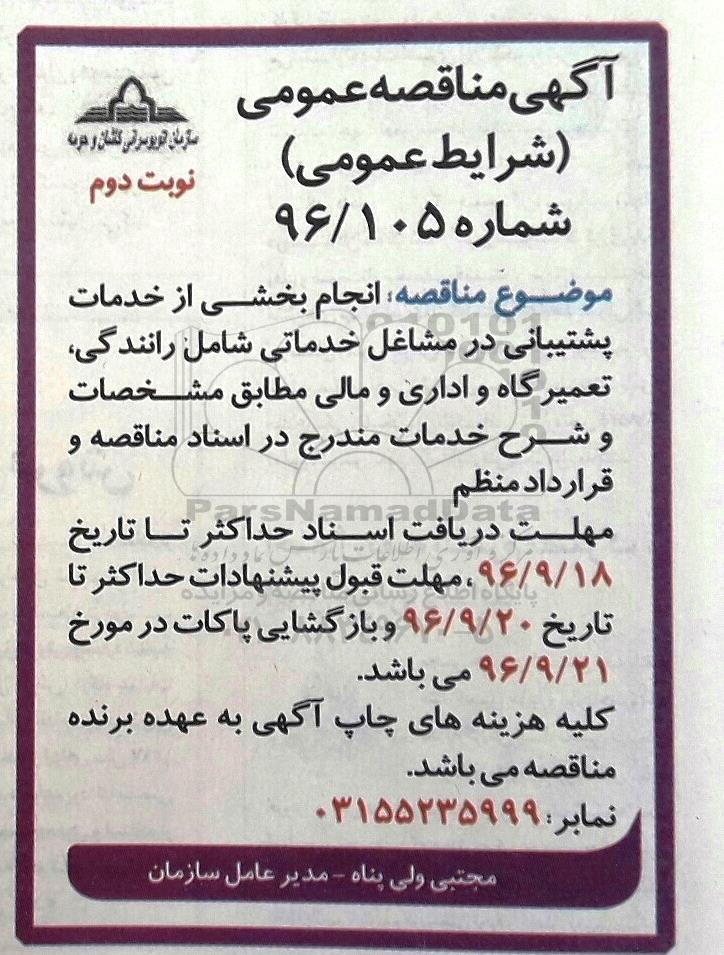 آگهی مناقصه عمومی
(شرایط عمومی)
شماره ۹۶/۱۰۵
سازمان اتوبوسرانی کاشان و حومه
نوبت دوم
موضوع مناقصه: انجام بخشی از خدمات
پشتیبانی در مشاغل خدماتی شامل رانندگی،
تعمیرگاه و اداری و مالی مطابق مشخصات
و شرح خدمات مندرج در اسناد مناقصه و
قرارداد منظم
ParsNamadData
مهلت دریافت اسناد حداکثر تا تاریخ
۹۶/۹/۱۸، مهلت قبول پیشنهادات حداکثر تا
پایگاه اطلاع رسانی مناقصه و مزایده
تاریخ ۹۶/۹/۲۰ و بازگشایی پاکات در مورخ
۹۶/۹/۲۱ می باشد.
کلیه هزینه های چاپ آگهی به عهده برنده
مناقصه می باشد.
نمابر: ۰۳۱۵۵۲۳۵۹۹۹
مجتبی ولی پناه - مدیر عامل سازمان